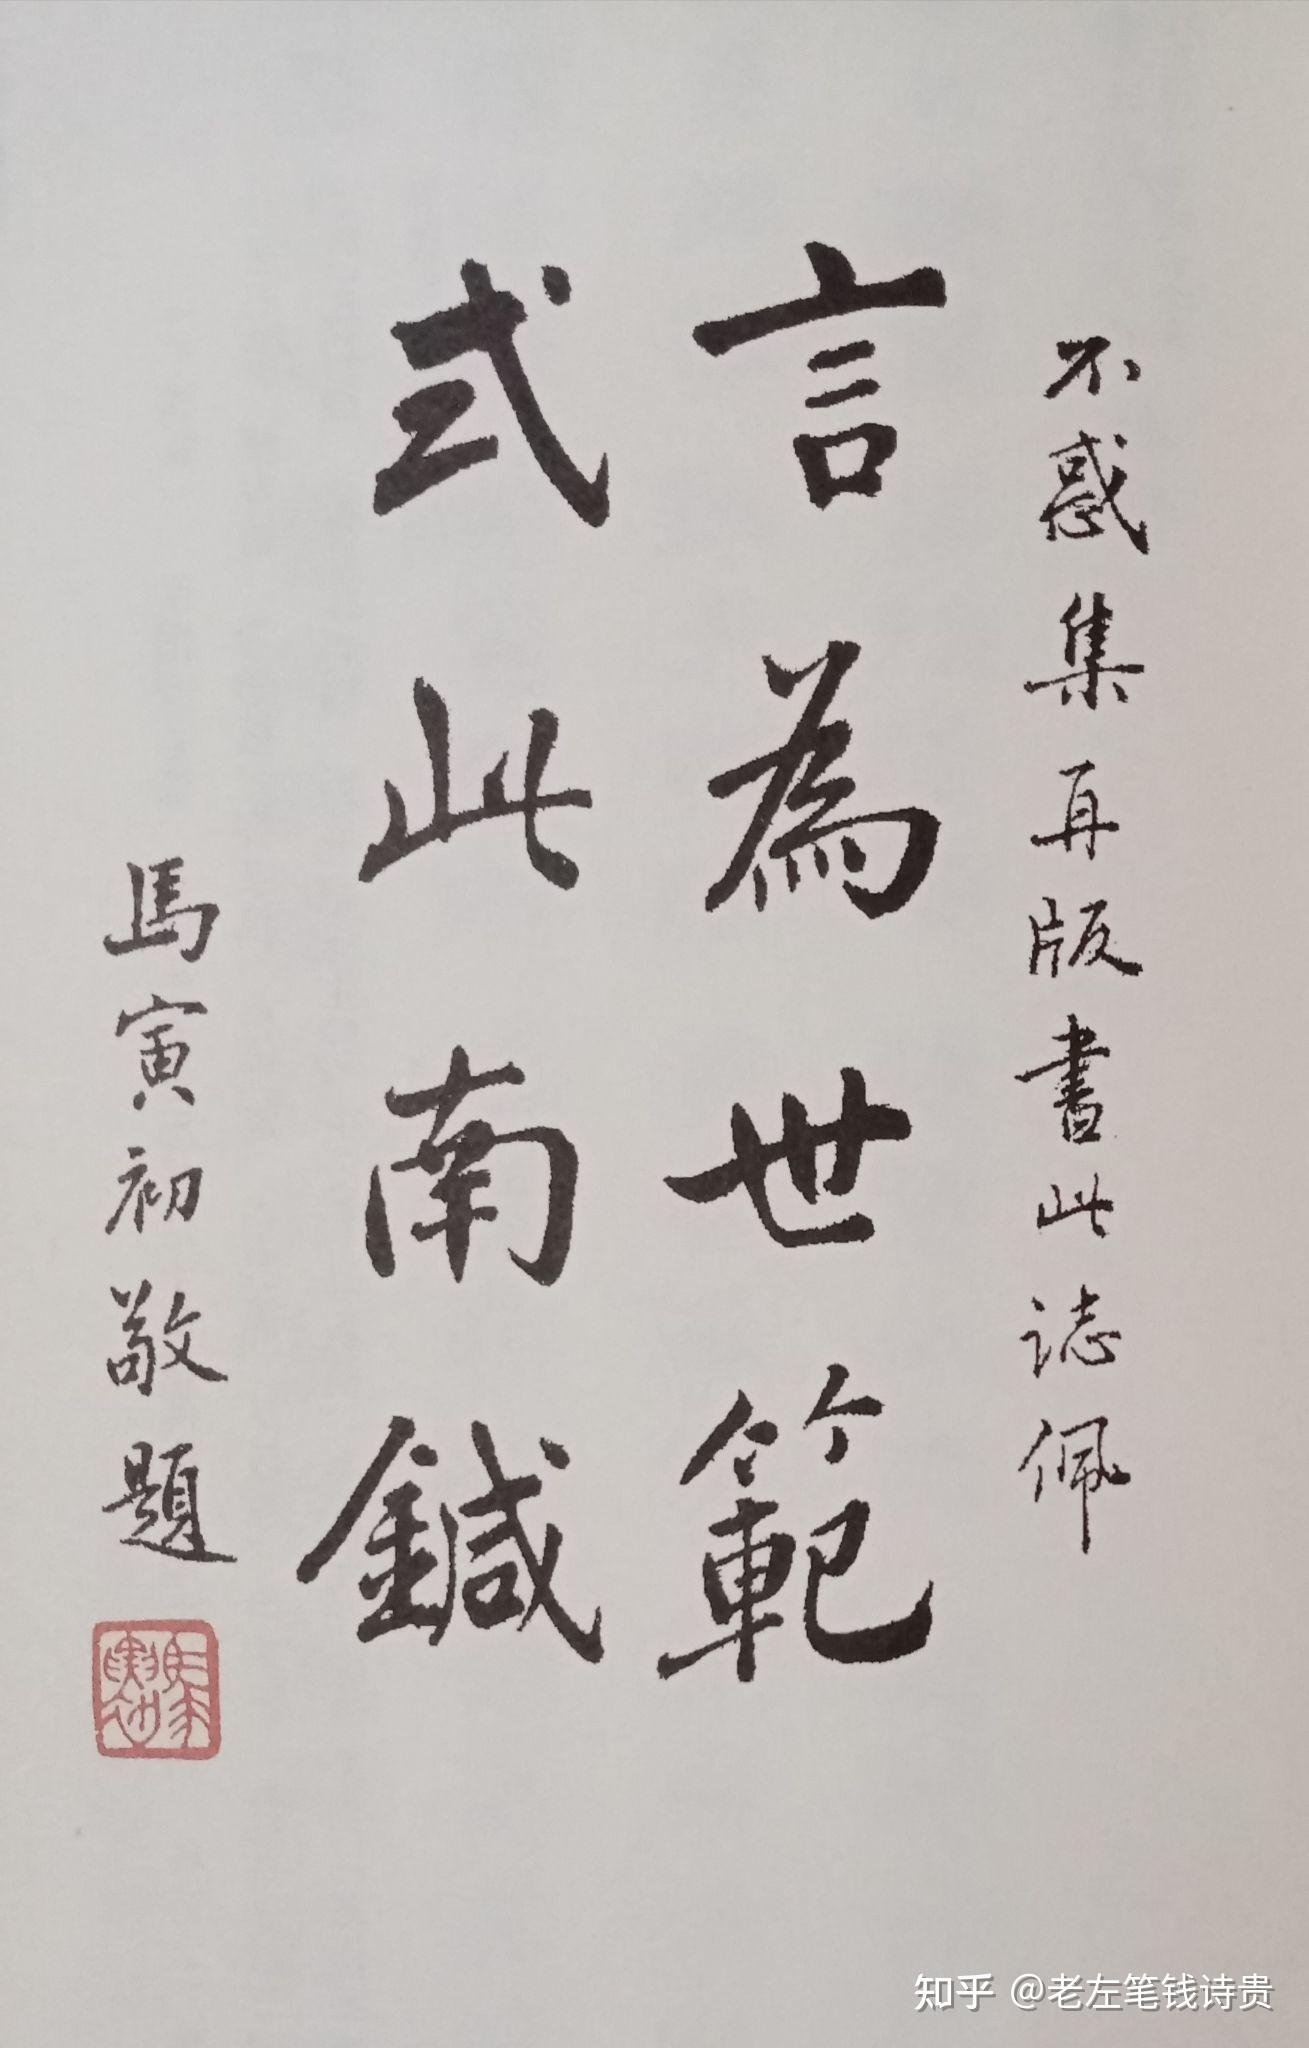 不惑集再版書此誌佩
言為世範
式此南鍼
馬寅初敬題
馬寅初
知乎 @老左笔钱诗贵